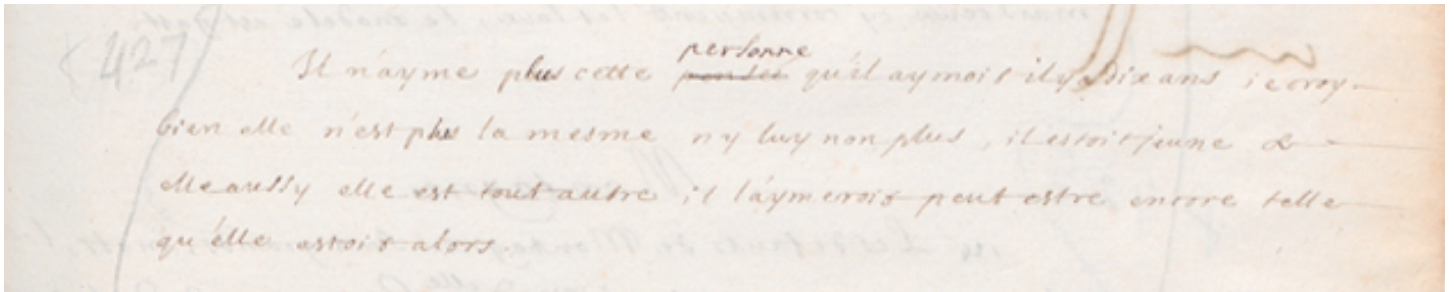 427
personne
Il n'ayme plus cette pensée qu'il aymoit il y a dix ans ie croy
bien elle n'est plus la mesme ny luy non plus, il estoit jeune &
elle aussy elle est tout autre il l'aymeroit peut estre encore telle
qu'elle estoit alors.